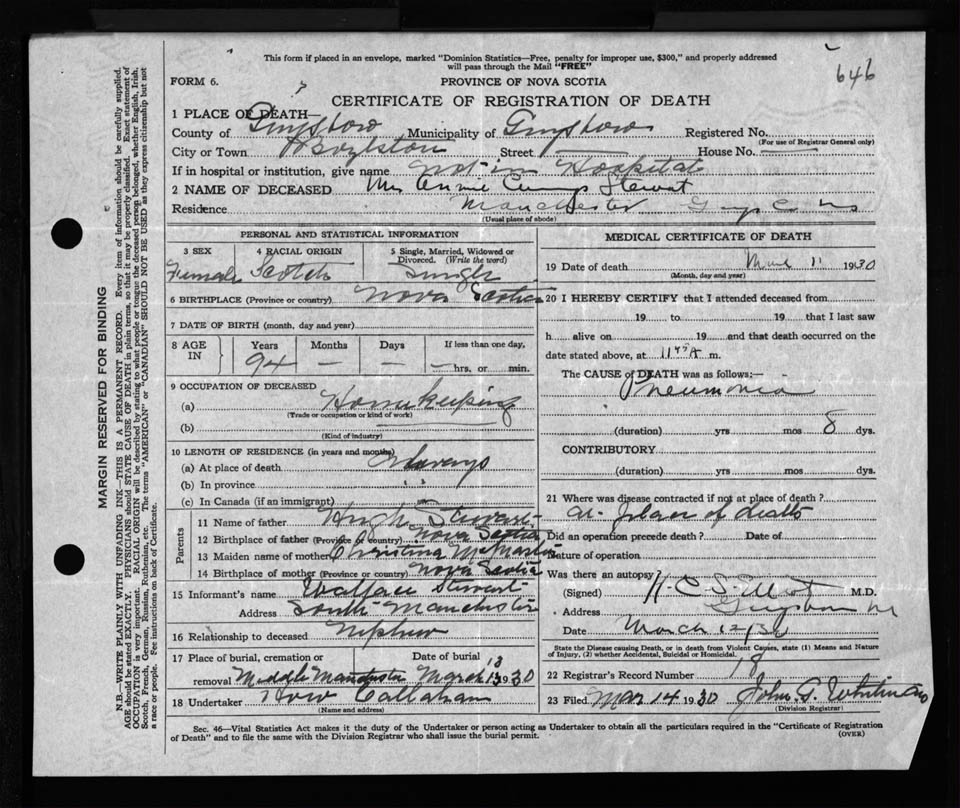 This form if placed in an envelope, marked "Dominion Statistics—Free, penalty for improper use, $300," and properly addressed
will pass through the Mail "FREE"
646
FORM 6.
PROVINCE OF NOVA SCOTIA
CERTIFICATE OF REGISTRATION OF DEATH
1 PLACE OF DEATH—
County of Guysboro Municipality of Guysboro Registered No.
(For use of Registrar General only)
City or Town Boylston Street House No.
If in hospital or institution, give name Not in Hospital
2 NAME OF DECEASED Annie Stewart
Residence Manchester Guys Co NS
(Usual place of abode)
PERSONAL AND STATISTICAL INFORMATION
3 SEX 4 RACIAL ORIGIN 5 Single, Married, Widowed or Divorced. (Write the word)
Female Scotch Single
6 BIRTHPLACE (Province or country) Nova Scotia
7 DATE OF BIRTH (month, day and year)
8 AGE IN Years Months Days If less than one day,
94 — — — hrs. or min.
9 OCCUPATION OF DECEASED
(a) Home keeping
(Trade or occupation or kind of work)
(b)
(Kind of industry)
10 LENGTH OF RESIDENCE (in years and months)
(a) At place of death Always
(b) In province " "
(c) In Canada (if an immigrant) "
Parents
11 Name of father Hugh Stewart
12 Birthplace of father (Province or country) Nova Scotia
13 Maiden name of mother Christina McMaster
14 Birthplace of mother (Province or country) Nova Scotia
15 Informant's name Wallace Stewart
Address South Manchester
16 Relationship to deceased Nephew
17 Place of burial, cremation or removal Middle Manchester Date of burial March 13 1930
13
18 Undertaker How Callahan
(Name and address)
MEDICAL CERTIFICATE OF DEATH
19 Date of death 11 1930
(Month, day and year)
20 I HEREBY CERTIFY that I attended deceased from
19 to 19 that I last saw
h alive on 19 and that death occurred on
date stated above, at m.
The CAUSE of DEATH was as follows:—
Pneumonia
(duration) yrs mos 8 dys.
CONTRIBUTORY
(duration) yrs mos dys.
21 Where was disease contracted if not at place of death?
At place of death
Did an operation precede death? Date of
Nature of operation
Was there an autopsy?
(Signed) H. C. S. Elliot M.D.
Address Guysboro
Date March 12/30
State the Disease causing Death, or in death from Violent Causes, state (1) Means and Nature
of Injury, (2) whether Accidental, Suicidal or Homicidal.
22 Registrar's Record Number 18
23 Filed Mar 14 1930 John S.
(Division Registrar)
Sec. 46—Vital Statistics Act makes it the duty of the Undertaker or person acting as Undertaker to obtain all the particulars required in the "Certificate of Registration
of Death" and to file the same with the Division Registrar who shall issue the burial permit.
(OVER)
MARGIN RESERVED FOR BINDING
N.B.—WRITE PLAINLY WITH UNFADING INK—THIS IS A PERMANENT RECORD. Every item of information should be carefully supplied.
AGE should be stated EXACTLY. PHYSICIANS should STATE CAUSE OF DEATH in plain terms, so that it may be properly classified. Exact statement of
OCCUPATION is very important. RACIAL ORIGIN will be described by stating to what people or tongue the deceased person belonged, whether English, Irish,
Scotch, French, German, Russian, Ruthenian, etc. The terms "AMERICAN" or "CANADIAN" SHOULD NOT BE USED as they express citizenship but not
a race or people. See instructions on back of Certificate.